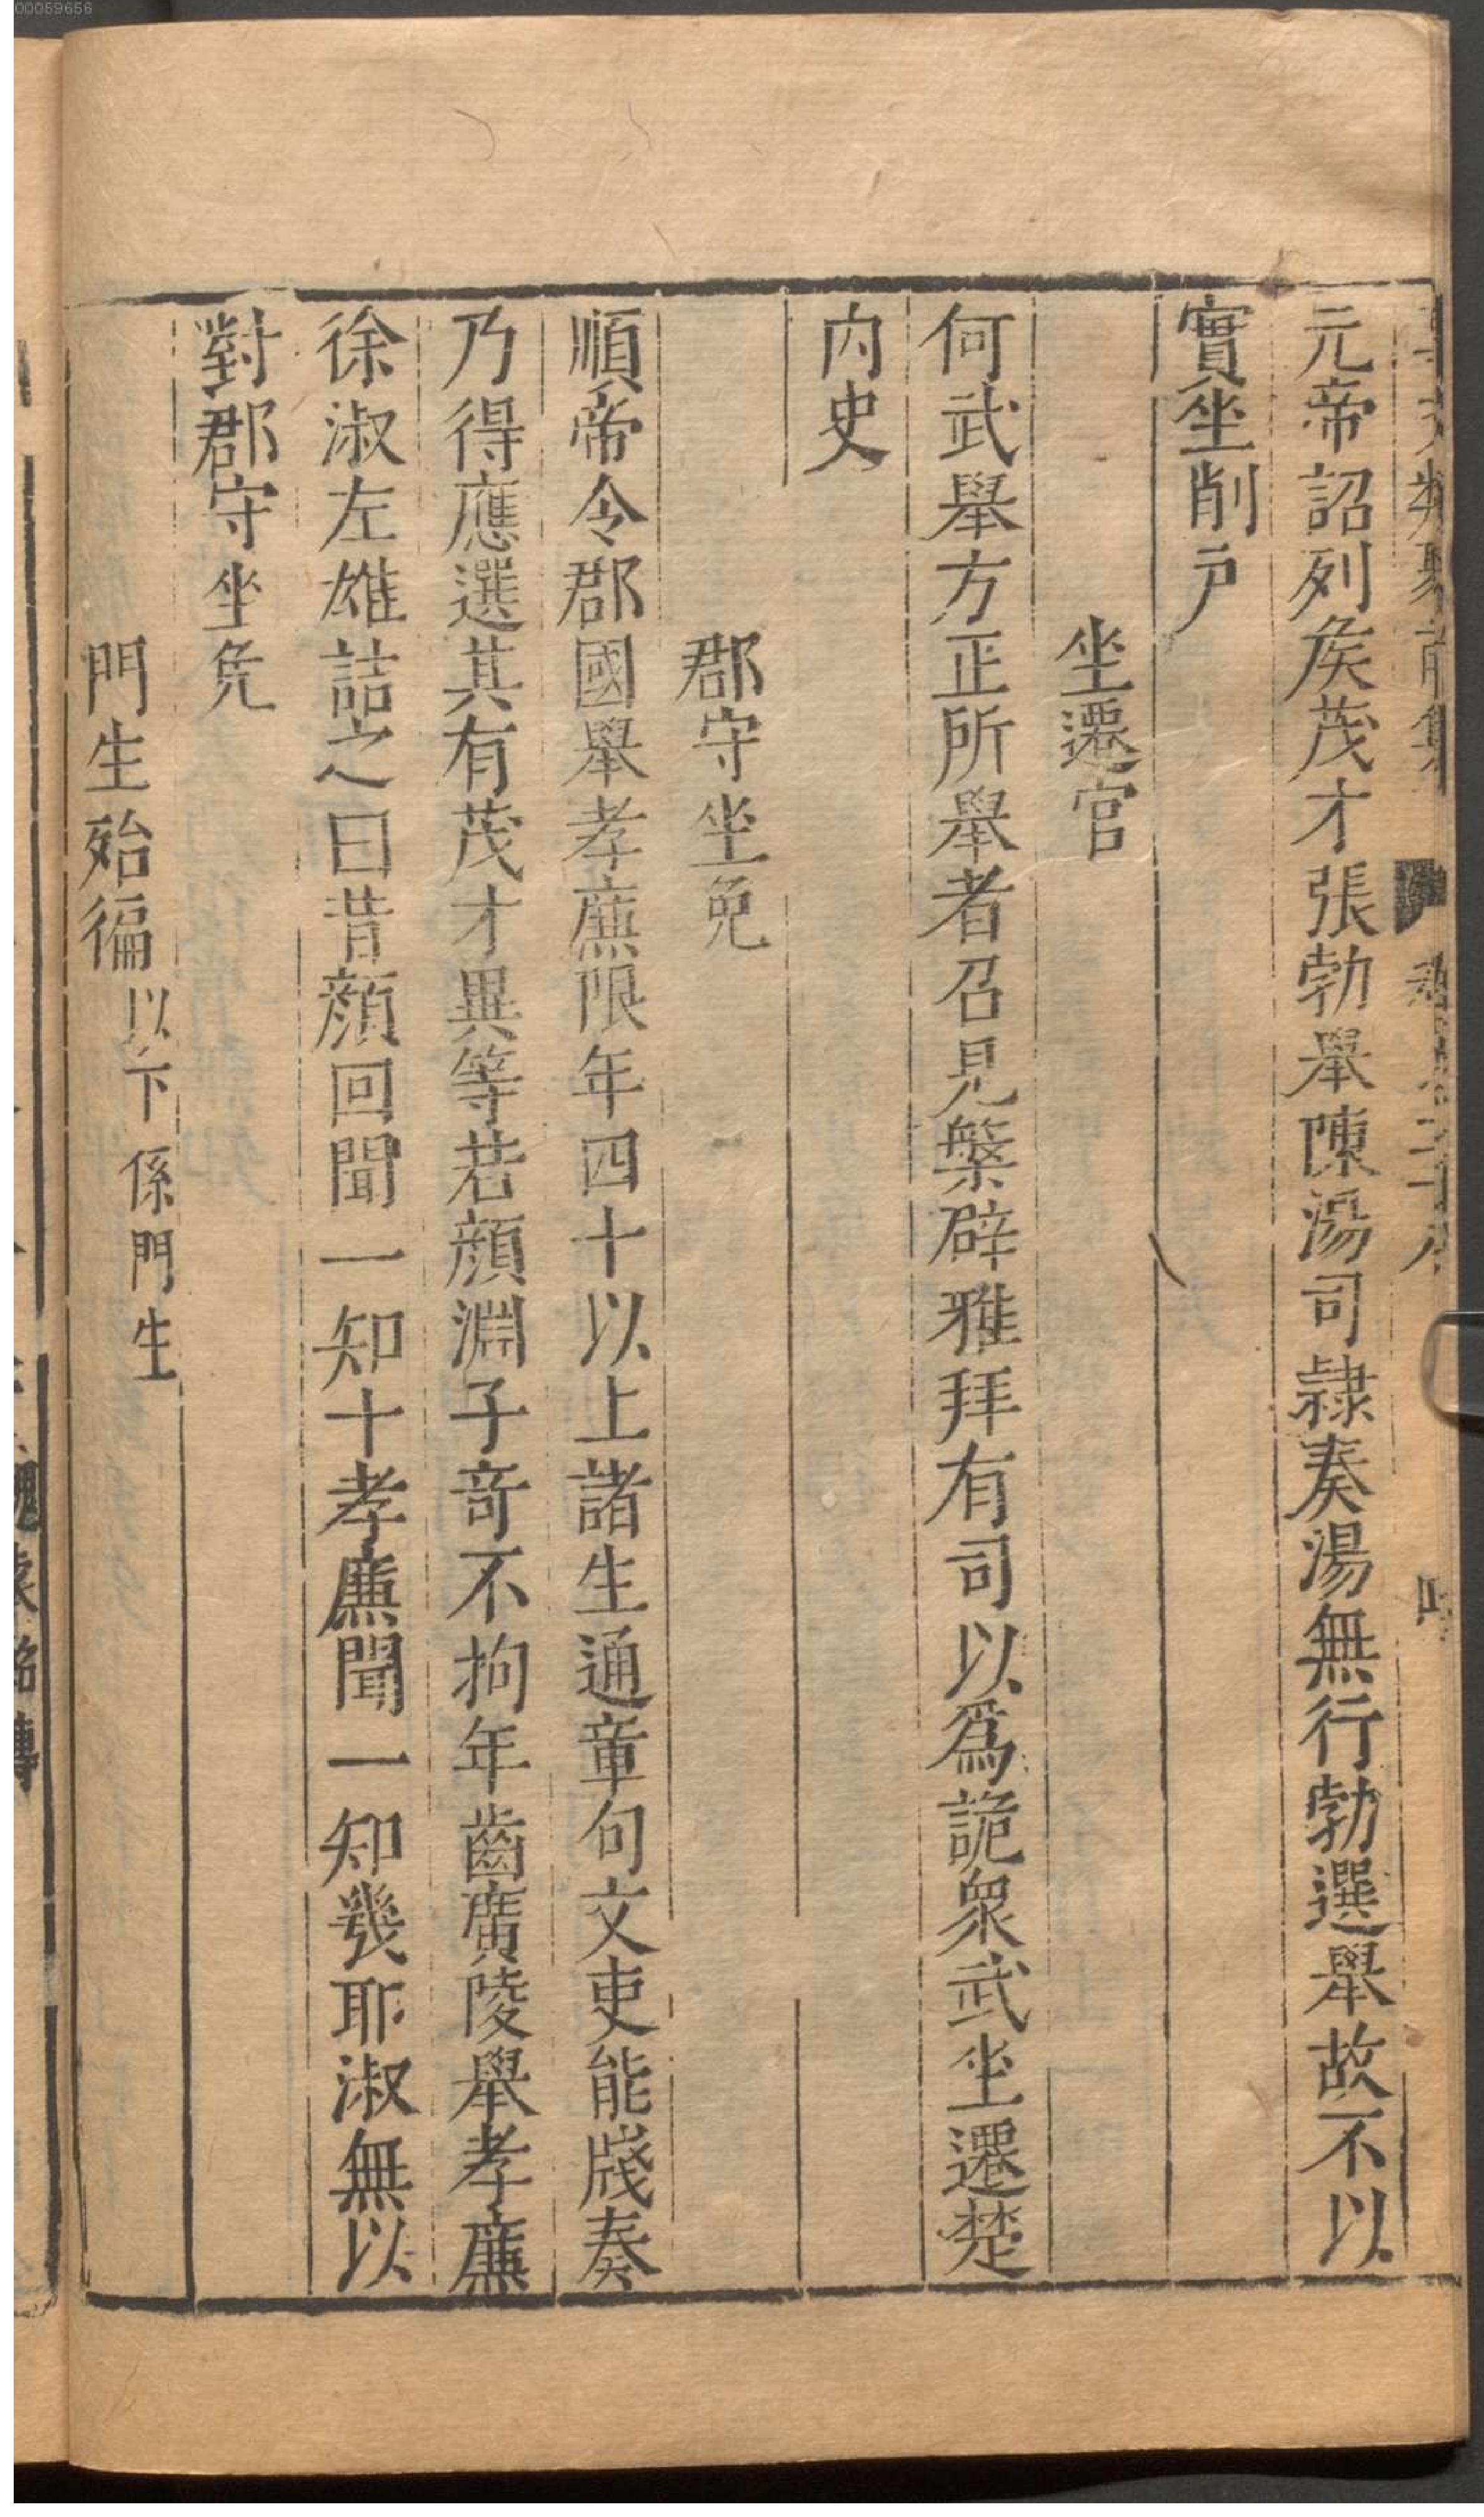 00059656
元帝詔列矦茂才張勃舉陳湯司隷奏湯無行勃選舉故不以
實坐削戶
坐遷官
何武舉方正所舉者召見槃辟雅拜有司以爲詭衆武坐遷楚
内史
郡守坐免
順帝令郡國舉孝廉限年四十以上諸生通章句文吏能牋奏
乃得應選其有茂才異等若顔淵子竒不拘年齒廣陵舉孝廉
徐淑左雄詰之曰昔顔回聞一知十孝廉聞一知幾耶淑無以
對郡守坐免
門生殆徧以下係門生